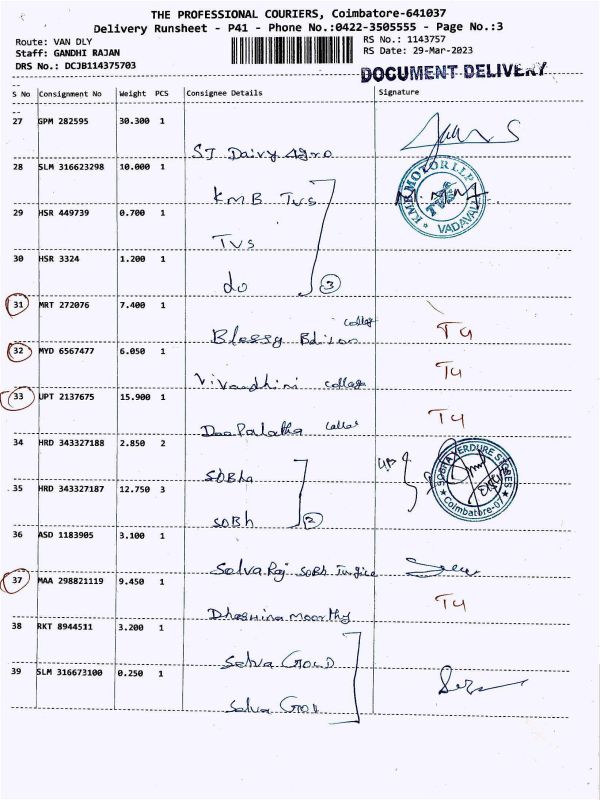 THE PROFESSIONAL COURIERS, Coimbatore-641037
Delivery Runsheet - P41 - Phone No.:0422-3505555 - Page No.:3
Route: VAN DLY
RS No.: 1143757
Staff: GANDHI RAJAN
RS Date: 29-Mar-2023
DRS No.: DCJB114375703
DOCUMENT DELIVERY
S No Consignment No Weight PCS Consignee Details Signature
27 GPM 282595 30.300 1
ST Dairy Agro
28 SLM 316623298 10.000 1
KMB TVS
KMB MOTOR LLP TVS VADAVALLI
29 HSR 449739 0.700 1
TVS
30 HSR 3324 1.200 1
do 3
31 MRT 272076 7.400 1
Blessy college
T4
32 MYD 6567477 6.050 1
college
T4
33 UPT 2137675 15.900 1
T4
34 HRD 343327188 2.850 2
SOBha
SOBHA VERDURE STORES Coimbatore-07
35 HRD 343327187 12.750 3
SOBh 2
36 ASD 1183905 3.100 1
Selva Raj SOBh
37 MAA 298821119 9.450 1
moorthy
T4
38 RKT 8944511 3.200 1
Selva GOLD
39 SLM 316673100 0.250 1
Selva GOLD